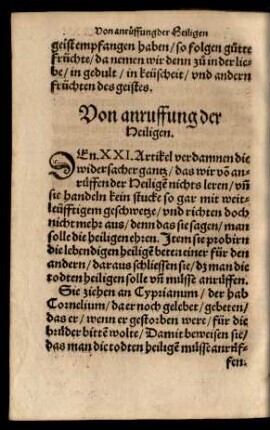 Von anrüffung der Heiligen
geist empfangen haben / so folgen gůtte
früchte / da nemen wir denn zů in der lie-
be / in gedult / in keüscheit / vnd andern
früchten des geistes.
Von anruffung der
Heiligen.
DEn. XXI. Artikel verdamnen die
widersacher gantz / das wir vō an-
rüffen der Heiligē nichts leren / vñ
sie handeln kein stuck so gar mit weit-
leüfftigem geschwetze / vnd richten doch
nicht mehr aus / denn das sie sagen / man
solle die heiligen ehren. Item sie probirn
die lebendigen heiligē beten einer für den
andern / daraus schliessen sie / dz man die
todten heiligen solle vñ müsse anrüffen.
Sie ziehen an Cyprianum / der hab
Cornelium / da er noch gelebet / gebeten /
das er / wenn er gestorben were / für die
brůder bittē wolte / Damit beweisen sie /
das man die todten heiligē müsse anrüf-
fen.